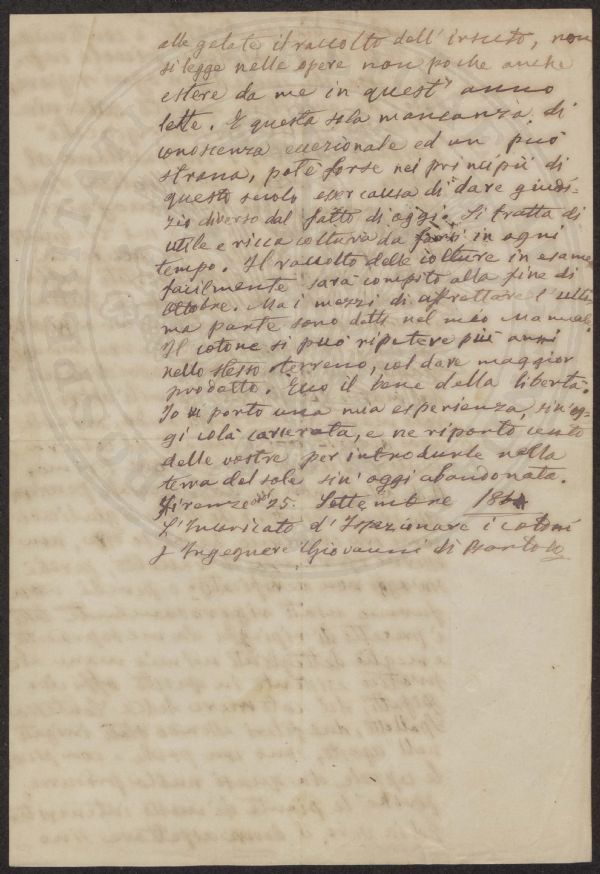 alle gelate il raccolto dell'irsuto, non
si legge nelle opere non poche anche
estere da me in quest'anno
lette. E questa sola mancanza di
conoscenza eccezionale ed un può
strana, potè forse nei principii di
questo secolo esser causa di dare giudi-
zio diverso dal fatto di oggi. Si tratta di
utile e ricca coltura da farsi in ogni
tempo. Il raccolto delle colture in esame
facilmente sarà compito alla fine di
Ottobre. Ma i mezzi di affrettare l'ulti-
ma parte sono detti nel mio Manuale.
Il cotone si può ripetere più anni
nello stesso terreno, col dare maggior
prodotto. Ecco il bene della libertà.
Io vi porto una mia esperienza, sin og-
gi colà carcerata, e ne riporto cento
delle vostre per introdurle nella
terra del sole sin'oggi abandonata.
Firenze 25. Settembre
L'Incaricato d'Ispezionare i cotoni
Ingegnere Giovanni di Bartolo